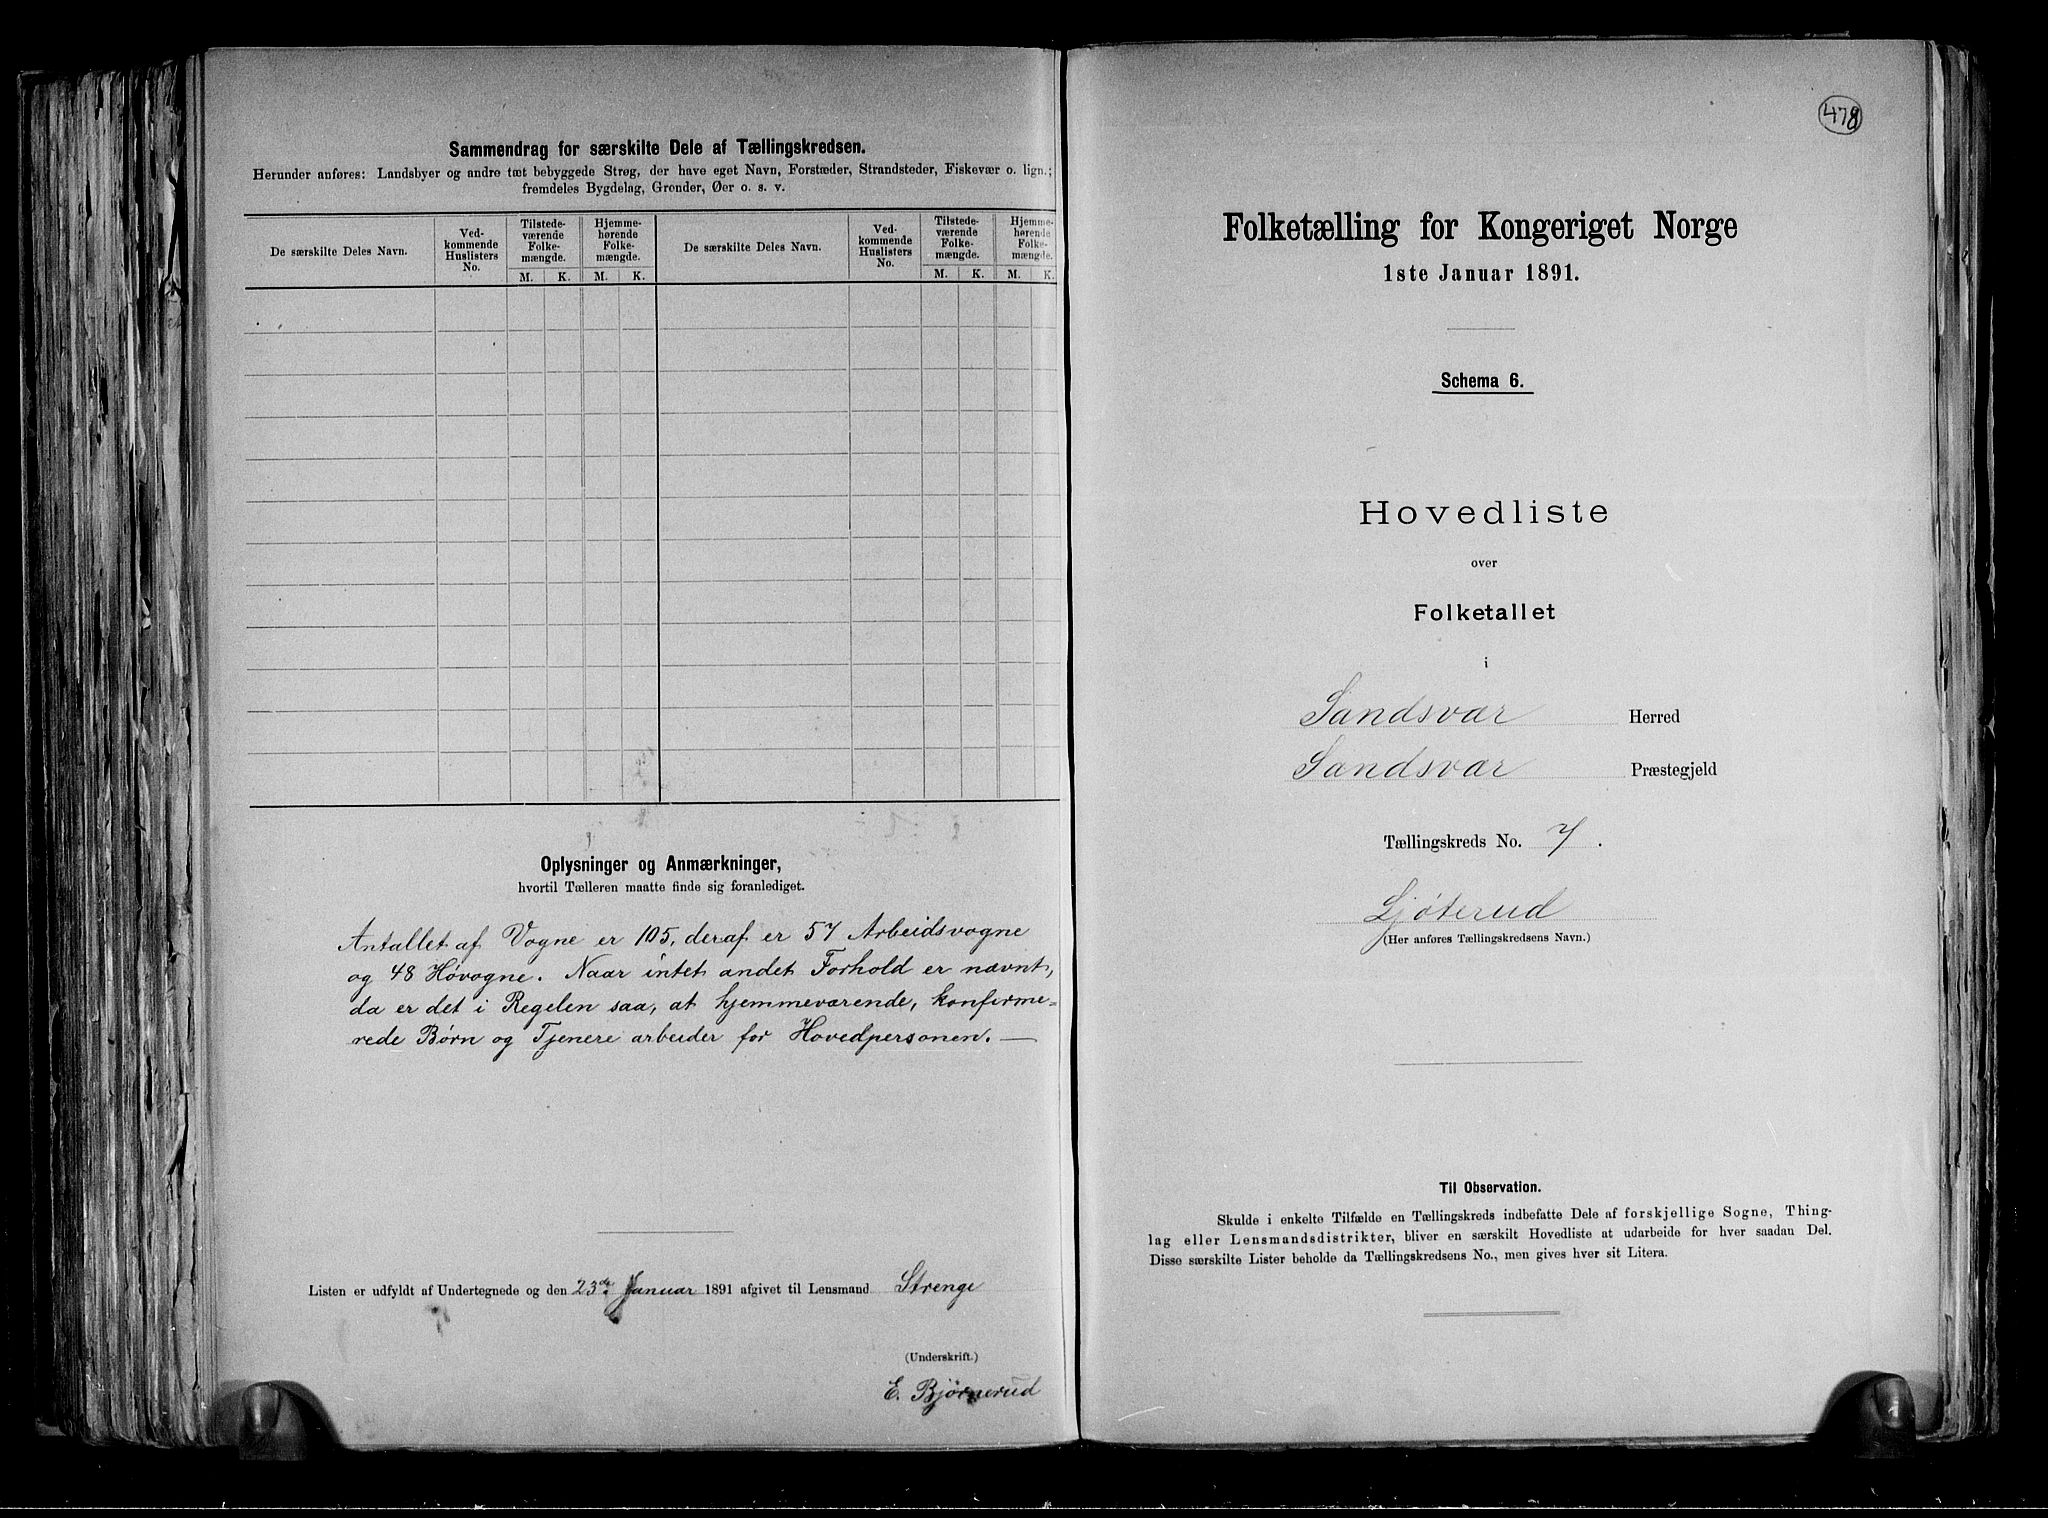 Sammendrag for særskilte Dele af Tællingskredsen.
Herunder anføres: Landsbyer og andre tæt bebyggede Strøg, der have eget Navn, Forstæder, Strandsteder, Fiskevær o. lign.;
fremdeles Bygdelag, Grender, Øer o. s. v.
De særskilte Deles Navn.
Ved-
kommende
Huslisters
No.
Tilstede-
værende
Folke-
mængde.
Hjemme-
hørende
Folke-
mængde.
De særskilte Deles Navn.
Ved-
kommende
Huslisters
No.
Tilstede-
værende
Folke-
mængde.
Hjemme-
hørende
Folke-
mængde.
M. K. M. K. M. K. M. K.
Oplysninger og Anmærkninger,
hvortil Tælleren maatte finde sig foranlediget.
Antallet af Vogne er 105, deraf er 57 Arbeidsvogne
og 48 Høvogne. Naar intet andet Forhold er nævnt,
da er det i Regelen saa, at hjemmeværende, konfirme-
rede Børn og Tjenere arbeider for Hovedpersonen. —
Listen er udfyldt af Undertegnede og den 23de Januar 1891 afgivet til Lensmand Strenge
(Underskrift.)
E. Bjørnerud
478
Folketælling for Kongeriget Norge
1ste Januar 1891.
Schema 6.
Hovedliste
over
Folketallet
i
Sandsvær Herred
Sandsvær Præstegjeld
Tællingskreds No. 7.
Ljøterud
(Her anføres Tællingskredsens Navn.)
Til Observation.
Skulde i enkelte Tilfælde en Tællingskreds indbefatte Dele af forskjellige Sogne, Thing-
lag eller Lensmandsdistrikter, bliver en særskilt Hovedliste at udarbeide for hver saadan Del.
Disse særskilte Lister beholde da Tællingskredsens No., men gives hver sit Litera.